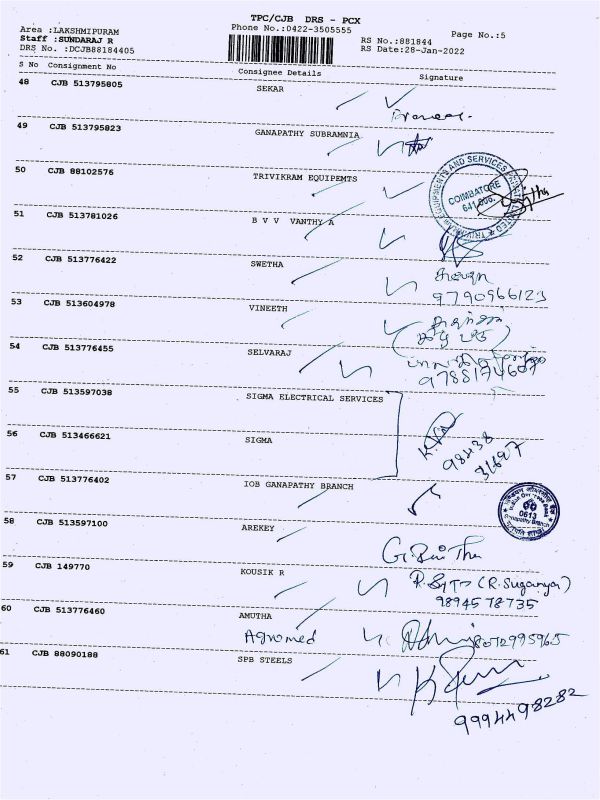 TPC/CJB DRS - PCX
Area :LAKSHMIPURAM Phone No.:0422-3505555 Page No.:5
Staff :SUNDARAJ R RS No.:881844
DRS No. :DCJB88184405 RS Date:28-Jan-2022
S No Consignment No Consignee Details Signature
48 CJB 513795805 SEKAR
49 CJB 513795823 GANAPATHY SUBRAMNIA
50 CJB 88102576 TRIVIKRAM EQUIPEMTS
COIMBATORE
51 CJB 513781026 B V V VANTHY A
52 CJB 513776422 SWETHA
9790966123
53 CJB 513604978 VINEETH
54 CJB 513776455 SELVARAJ
9788174607
55 CJB 513597038 SIGMA ELECTRICAL SERVICES
56 CJB 513466621 SIGMA
98438
31697
57 CJB 513776402 IOB GANAPATHY BRANCH
0613
58 CJB 513597100 AREKEY
59 CJB 149770 KOUSIK R
(R.Suganya)
9894578735
60 CJB 513776460 AMUTHA
Agromed 8072995965
61 CJB 88090188 SPB STEELS
9994498282